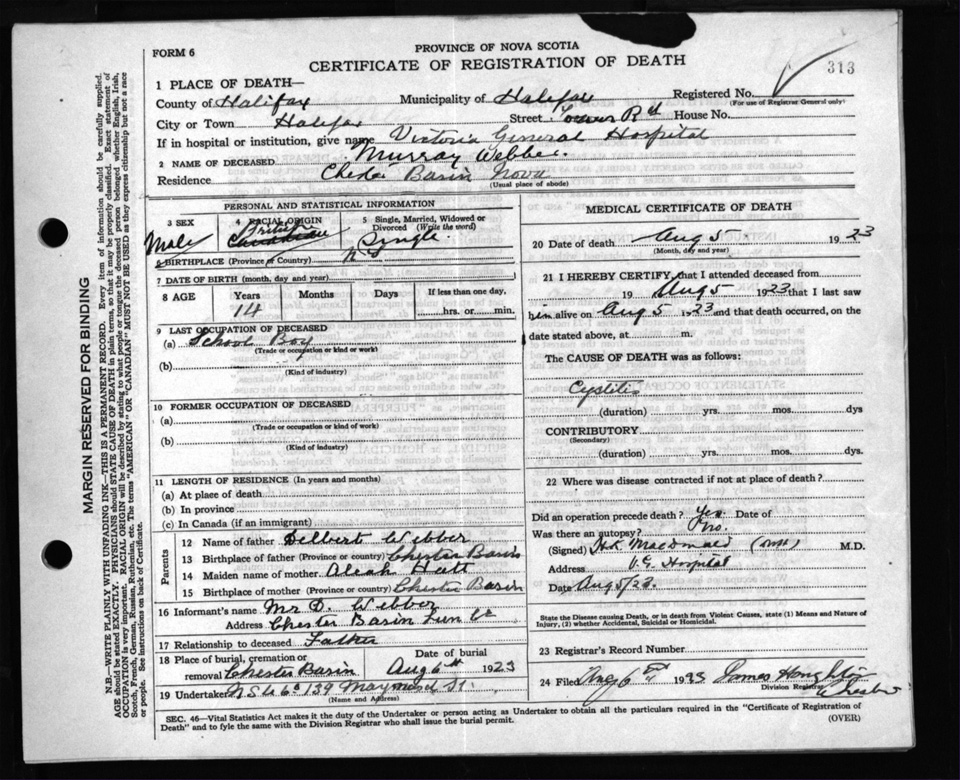 FORM 6
PROVINCE OF NOVA SCOTIA
CERTIFICATE OF REGISTRATION OF DEATH
313
1 PLACE OF DEATH—
County of Halifax Municipality of Halifax Registered No.
(For use of Registrar General only)
City or Town Halifax Street Tower Rd House No.
If in hospital or institution, give name Victoria General Hospital
2 NAME OF DECEASED Murray Webber.
Residence Basin Nova
(Usual place of abode)
PERSONAL AND STATISTICAL INFORMATION
3 SEX 4 RACIAL ORIGIN 5 Single, Married, Widowed or
Divorced (Write the word)
Male British Canadian Single.
6 BIRTHPLACE (Province or Country) N S
7 DATE OF BIRTH (month, day and year)
8 AGE Years Months Days If less than one day,
14 hrs. or min.
9 LAST OCCUPATION OF DECEASED
(a) School Boy
(Trade or occupation or kind of work)
(b)
(Kind of industry)
10 FORMER OCCUPATION OF DECEASED
(a)
(Trade or occupation or kind of work)
(b)
(Kind of industry)
11 LENGTH OF RESIDENCE (In years and months)
(a) At place of death
(b) In province
(c) In Canada (if an immigrant)
Parents
12 Name of father Delbert Webber
13 Birthplace of father (Province or country) Chester Basin
14 Maiden name of mother Aleah Hatt
15 Birthplace of mother (Province or country) Chester Basin
16 Informant's name Mr D. Webber
Address Chester Basin Lun Co
17 Relationship to deceased Father
18 Place of burial, cremation or Date of burial
removal Chester Basin Aug 6th 1923
19 Undertaker N.S.U. Co 139 Maynard St.
(Name and Address)
MEDICAL CERTIFICATE OF DEATH
20 Date of death Aug 5 1923
(Month, day and year)
21 I HEREBY CERTIFY, that I attended deceased from
19 Aug 5 1923 that I last saw
him alive on Aug 5 1923 and that death occurred, on
date stated above, at m.
The CAUSE OF DEATH was as follows:
Cystitis
(duration) yrs. mos. dys
CONTRIBUTORY
(Secondary)
(duration) yrs. mos. dys.
22 Where was disease contracted if not at place of death?
Did an operation precede death? Yes Date of
Was there an autopsy? No.
(Signed) H.K. MacDonald M.D.
Address V.G. Hospital
Date Aug 5/23.
State the Disease causing Death, or in death from Violent Causes, state (1) Means and Nature of
Injury, (2) whether Accidental, Suicidal or Homicidal.
23 Registrar's Record Number
24 Filed Aug 6th 1923 James
Division Registrar
SEC. 46—Vital Statistics Act makes it the duty of the Undertaker or person acting as Undertaker to obtain all the particulars required in the "Certificate of Registration of
Death" and to fyle the same with the Division Registrar who shall issue the burial permit.
(OVER)
MARGIN RESERVED FOR BINDING
N.B.—WRITE PLAINLY WITH UNFADING INK—THIS IS A PERMANENT RECORD. Every item of information should be carefully supplied.
AGE should be stated EXACTLY. PHYSICIANS should STATE CAUSE OF DEATH in plain terms, so that it may be properly classified. Exact statement of
OCCUPATION is very important. RACIAL ORIGIN will be described by stating to what people or tongue the deceased person belonged whether English, Irish,
Scotch, French, German, Russian, Ruthenian, etc. The terms "AMERICAN" OR "CANADIAN" MUST NOT BE USED as they express citizenship but not a race
or people. See instructions on back of Certificate.